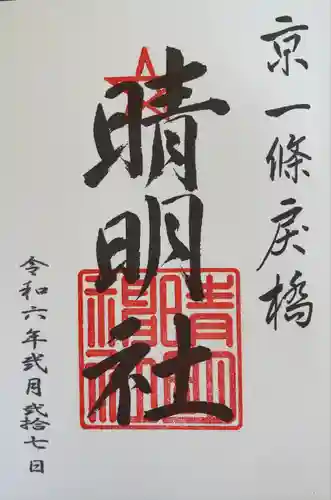 京一條戻橋
晴明社
令和六年弐月弐拾七日
晴明神社